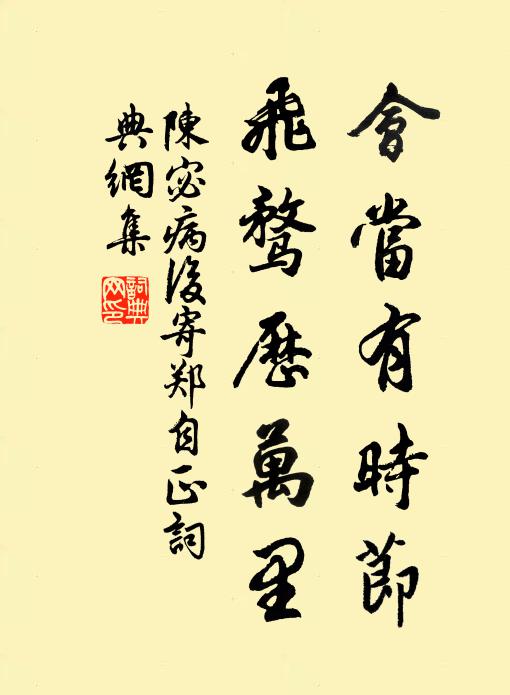 會當有時節
飛騖歷萬里
陳宓病後寄郑自正詞
典網集
詞典
网印